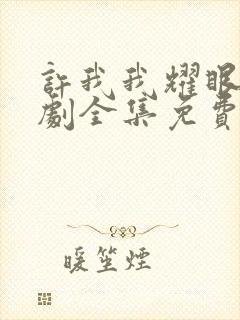 許我我耀眼
劇全集免費
暖笙煙